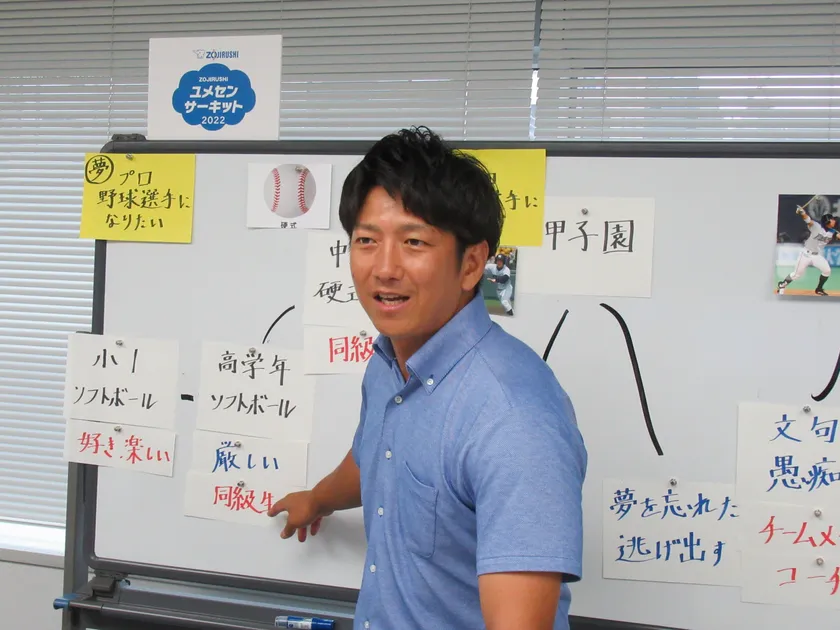 ZOJIRUSHI
ZOJIRUSHI
ユメセン
サーキット
2022
夢 プロ
野球選手に
なりたい
硬式
手に
甲子園
中
硬式
同級
小1
ソフトボール
好き、楽しい
高学年
ソフトボール
厳しい
同級生
夢を忘れた
逃げ出す
文句
愚痴
チームメ
コーチ